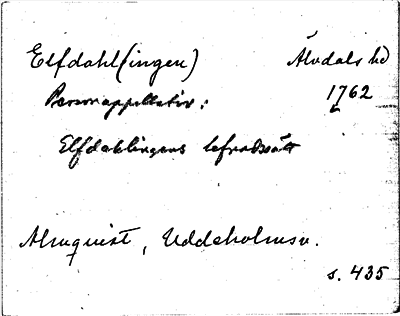 Elfdahl(ingen) Älvdals hd
Personappellativ: 1762
Elfdahlingens lefnadssätt
Almquist, Uddeholmsv.
s. 435